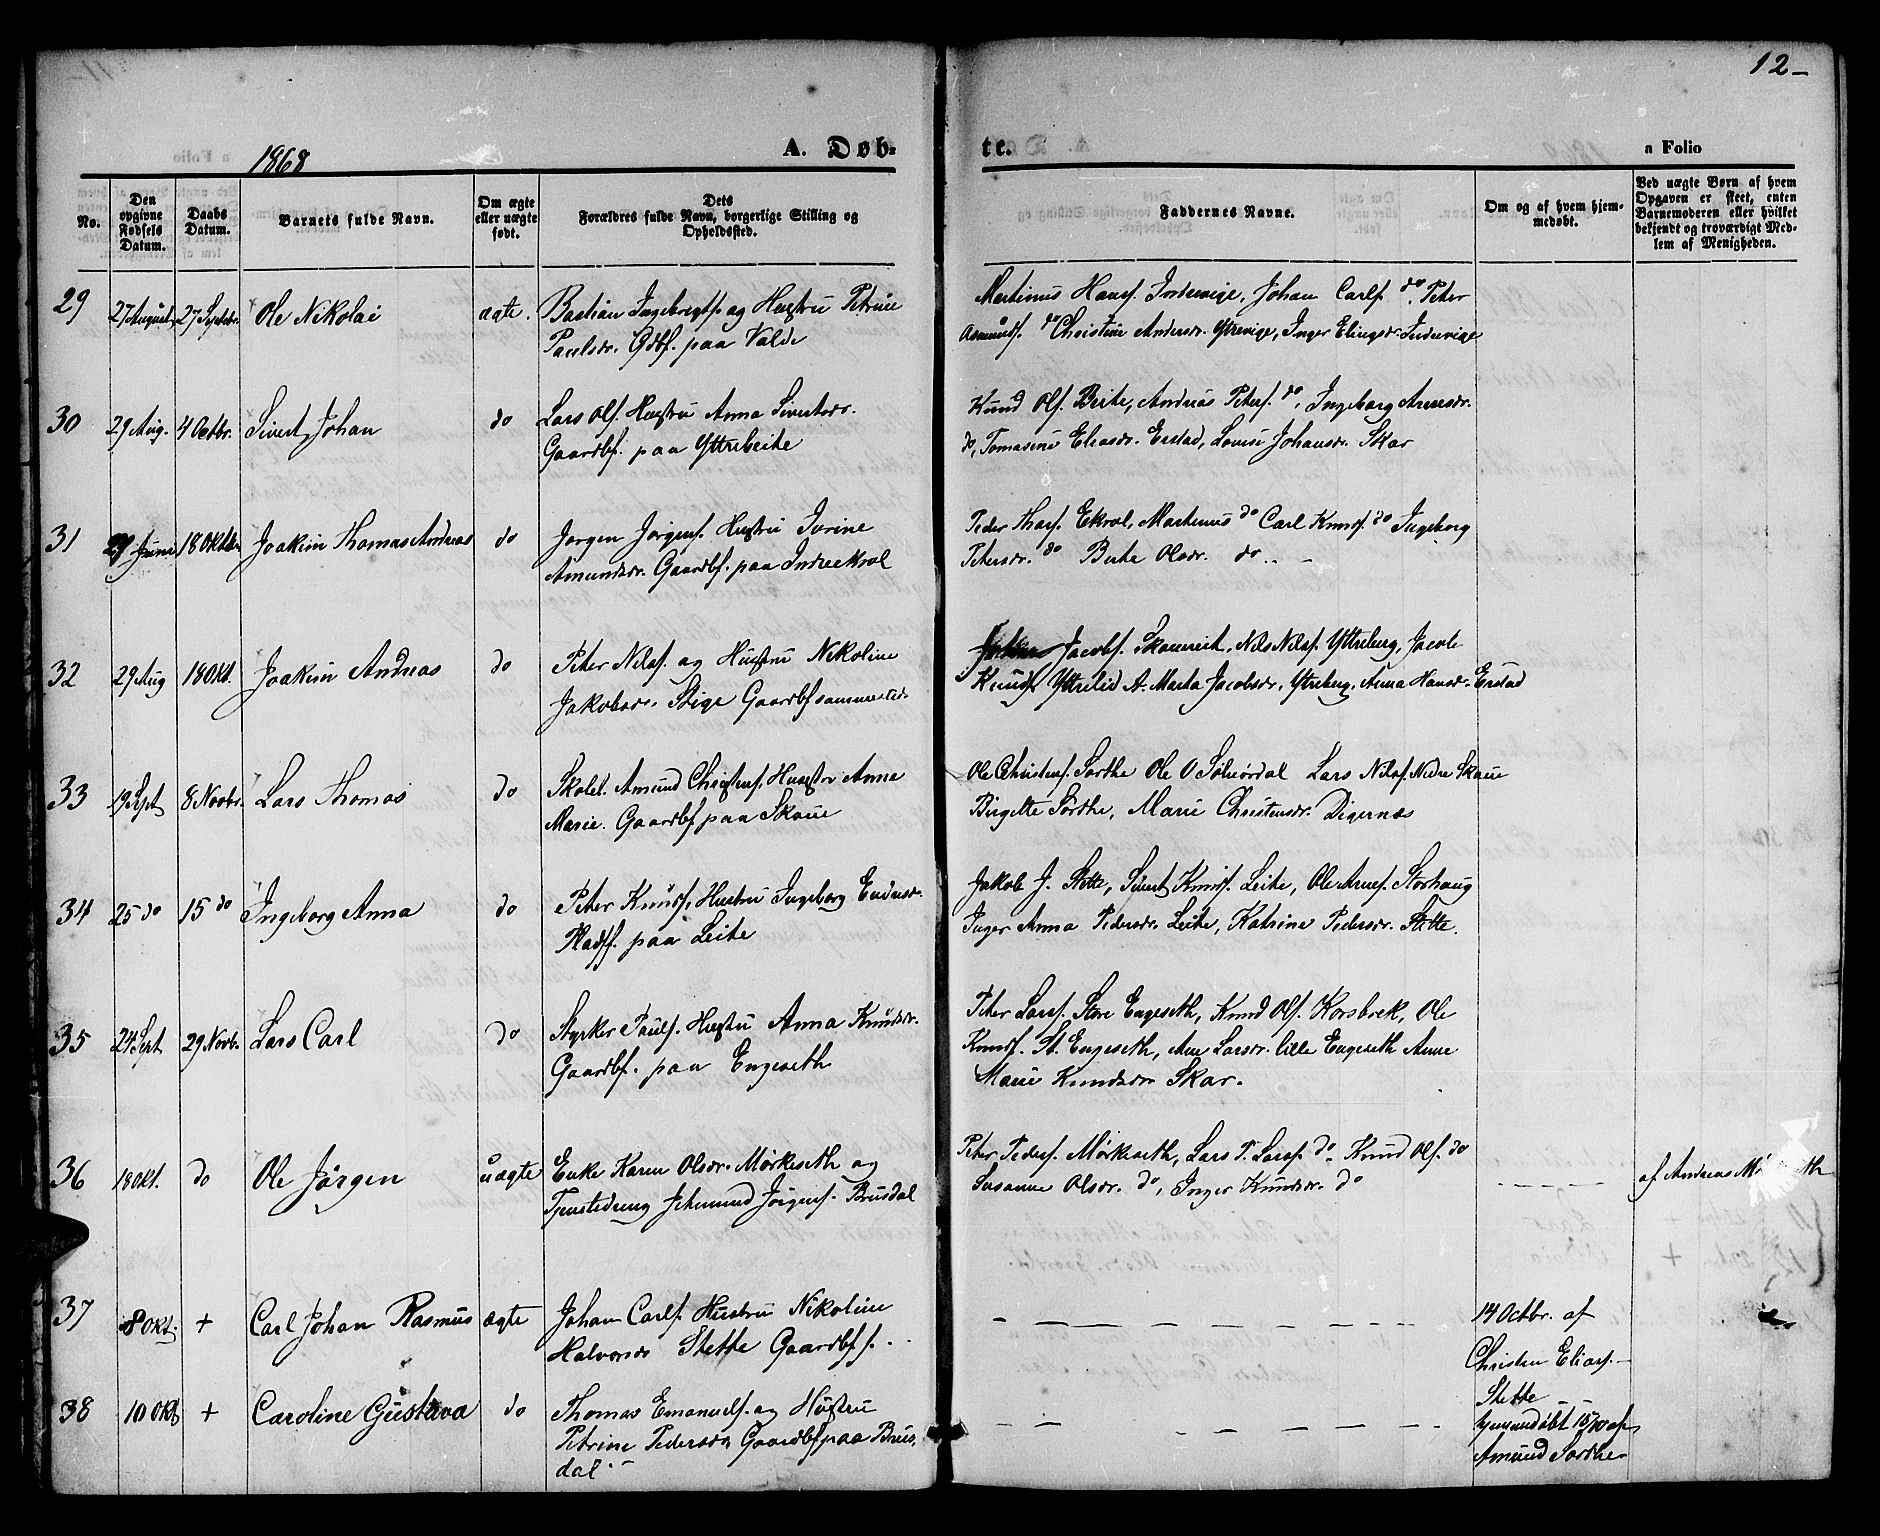 12-
1868
A. Døb-
te.
a Folio
No.
Den opgivne Fødsels Datum.
Daabs Datum.
Barnets fulde Navn.
Om ægte eller uægte født.
Dets Forældres fulde Navn, borgerlige Stilling og Opholdssted.
Faddernes Navne.
Om og af hvem hjemmedøbt.
Ved uægte Børn af hvem Opgaven er skeet, enten Barnemoderen eller hvilket bekjendt og troværdigt Medlem af Menigheden.
29 27 August 27 Septebr. Ole Nikolai ægte. Bastian Ingebregtss. og Hustru Petrine
Paulsdr. Gdbf. paa Valde
Martinus Hanss. Indrevige, Johan Carls. do, Peter
Asmunds. do Christine Andersdr. Yttrevige, Inger Elingsdr. Indrevige
30 29 Aug. 4 Octbr. Sivert Johan do Lars Ols. Hustru Anna Sivertsdr.
Gaardbf. paa Yttreleite
Knud Ols. Beite, Andreas Peters. do, Ingeborg Arnesdr.
do, Tomasine Eliasdr. Erstad, Lovise Johansdr. Skar
31 Juni 18 Oktbr Joakim Thomas Andreas do Jørgen Jørgens. Hustru Ivrine
Amundsdr. Gaardbf. paa Indreekrol
Peder Thors. Ekrol, Martinus do Carl Knuds. do Ingeborg
Petersdr. do Berte Olsdr. do
32 29 Aug 18 Okt. Joakim Andreas do Peter Nilss. og Hustru Nikoline
Jakobsdr. Stige Gaardbf sammested
Jacobs. Skoureit, Nils Nilss. Yttreberg, Jacob
Knuds. Yttrelid A. Marta Jacobsdr. Ytreberg, Anna Hansdr. Erstad
33 19 Sept 8 Novbr. Lars Thomas do Skolel. Amund Christens. Hustru Anna
Marie. Gaardbf paa Skoue
Ole Christens. Sorthe Ole O Solnørdal Lars Nilss. Nedre Skoue
Birgitte Sorthe, Marie Christensdr. Digernæs
34 25 do 15 do Ingeborg Anna do Peter Knuds. Hustru Ingeborg Endresdr.
Pladsf. paa Leite
Jakob J. Stette, Sivert Knuds. Leite, Ole Arnes. Storhaug
Inger Anna Pedersdr. Leite, Katrine Pedersdr. Stette.
35 24 Sept 29 Novb. Lars Carl do Styrker Pauls. Hustru Anna Knudsdr.
Gaardbf. paa Engeseth
Peter Larss. Store Engeseth, Knud Ols. Korsbrek, Ole
Knuds. St. Engeseth, Ane Larsdr. lille Engeseth Anne
Marie Knudsdr Skar.
36 18 Okt. do Ole Jørgen uægte Enke Karen Olsdr. Mørkeseth og
Tjenstedreng Jetmund Jørgens. Brusdal
Peter Peders. Mørkeseth, Lars P. Larss. do Knud Ols. do
Susanne Olsdr. do, Inger Knudsdr. do
af Andreas
37 8 Okt. + Carl Johan Rasmus ægte Johan Carls. Hustru Nikoline
Halvorsdr Stette Gaardbf s.
14 Octbr. af
Christen Eliass.
Stette
38 10 Okt + Caroline Gustava do Thomas Emanuels. og Hustru
Petrine Pedersdr Gaardbf paa Brus,
dal
hjemmedøbt 15/10 af
Amund Sorthe